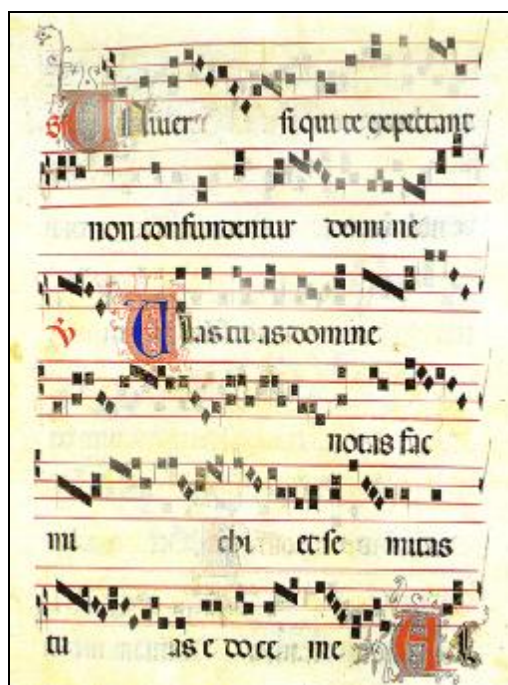 Univer si qui te expectant
non confundentur domine
V Vias tuas domine
notas fac
mi chi et se mitas
tu as e do ce me Al